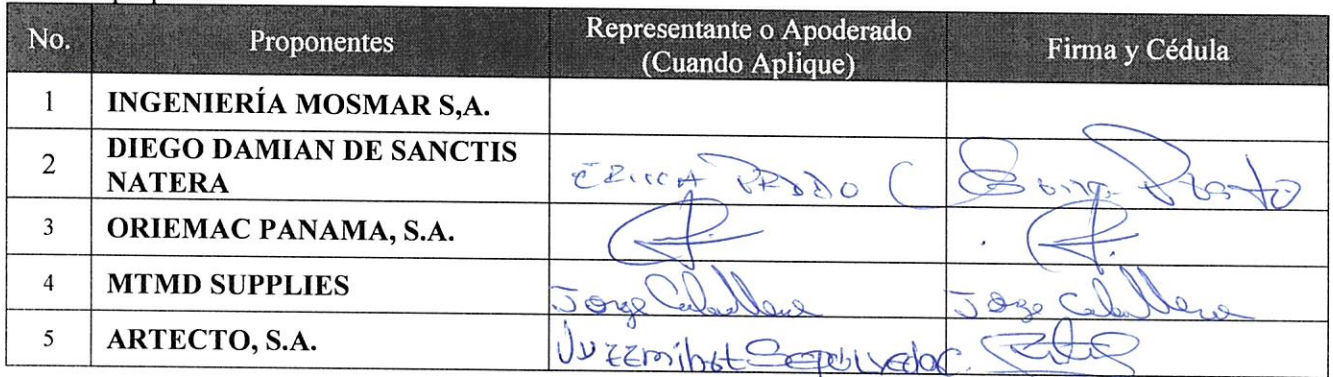 No. Proponentes Representante o Apoderado (Cuando Aplique) Firma y Cédula
1 INGENIERÍA MOSMAR S,A.
2 DIEGO DAMIAN DE SANCTIS NATERA
3 ORIEMAC PANAMA, S.A.
4 MTMD SUPPLIES Jorge Caballero Jorge Caballero
5 ARTECTO, S.A.